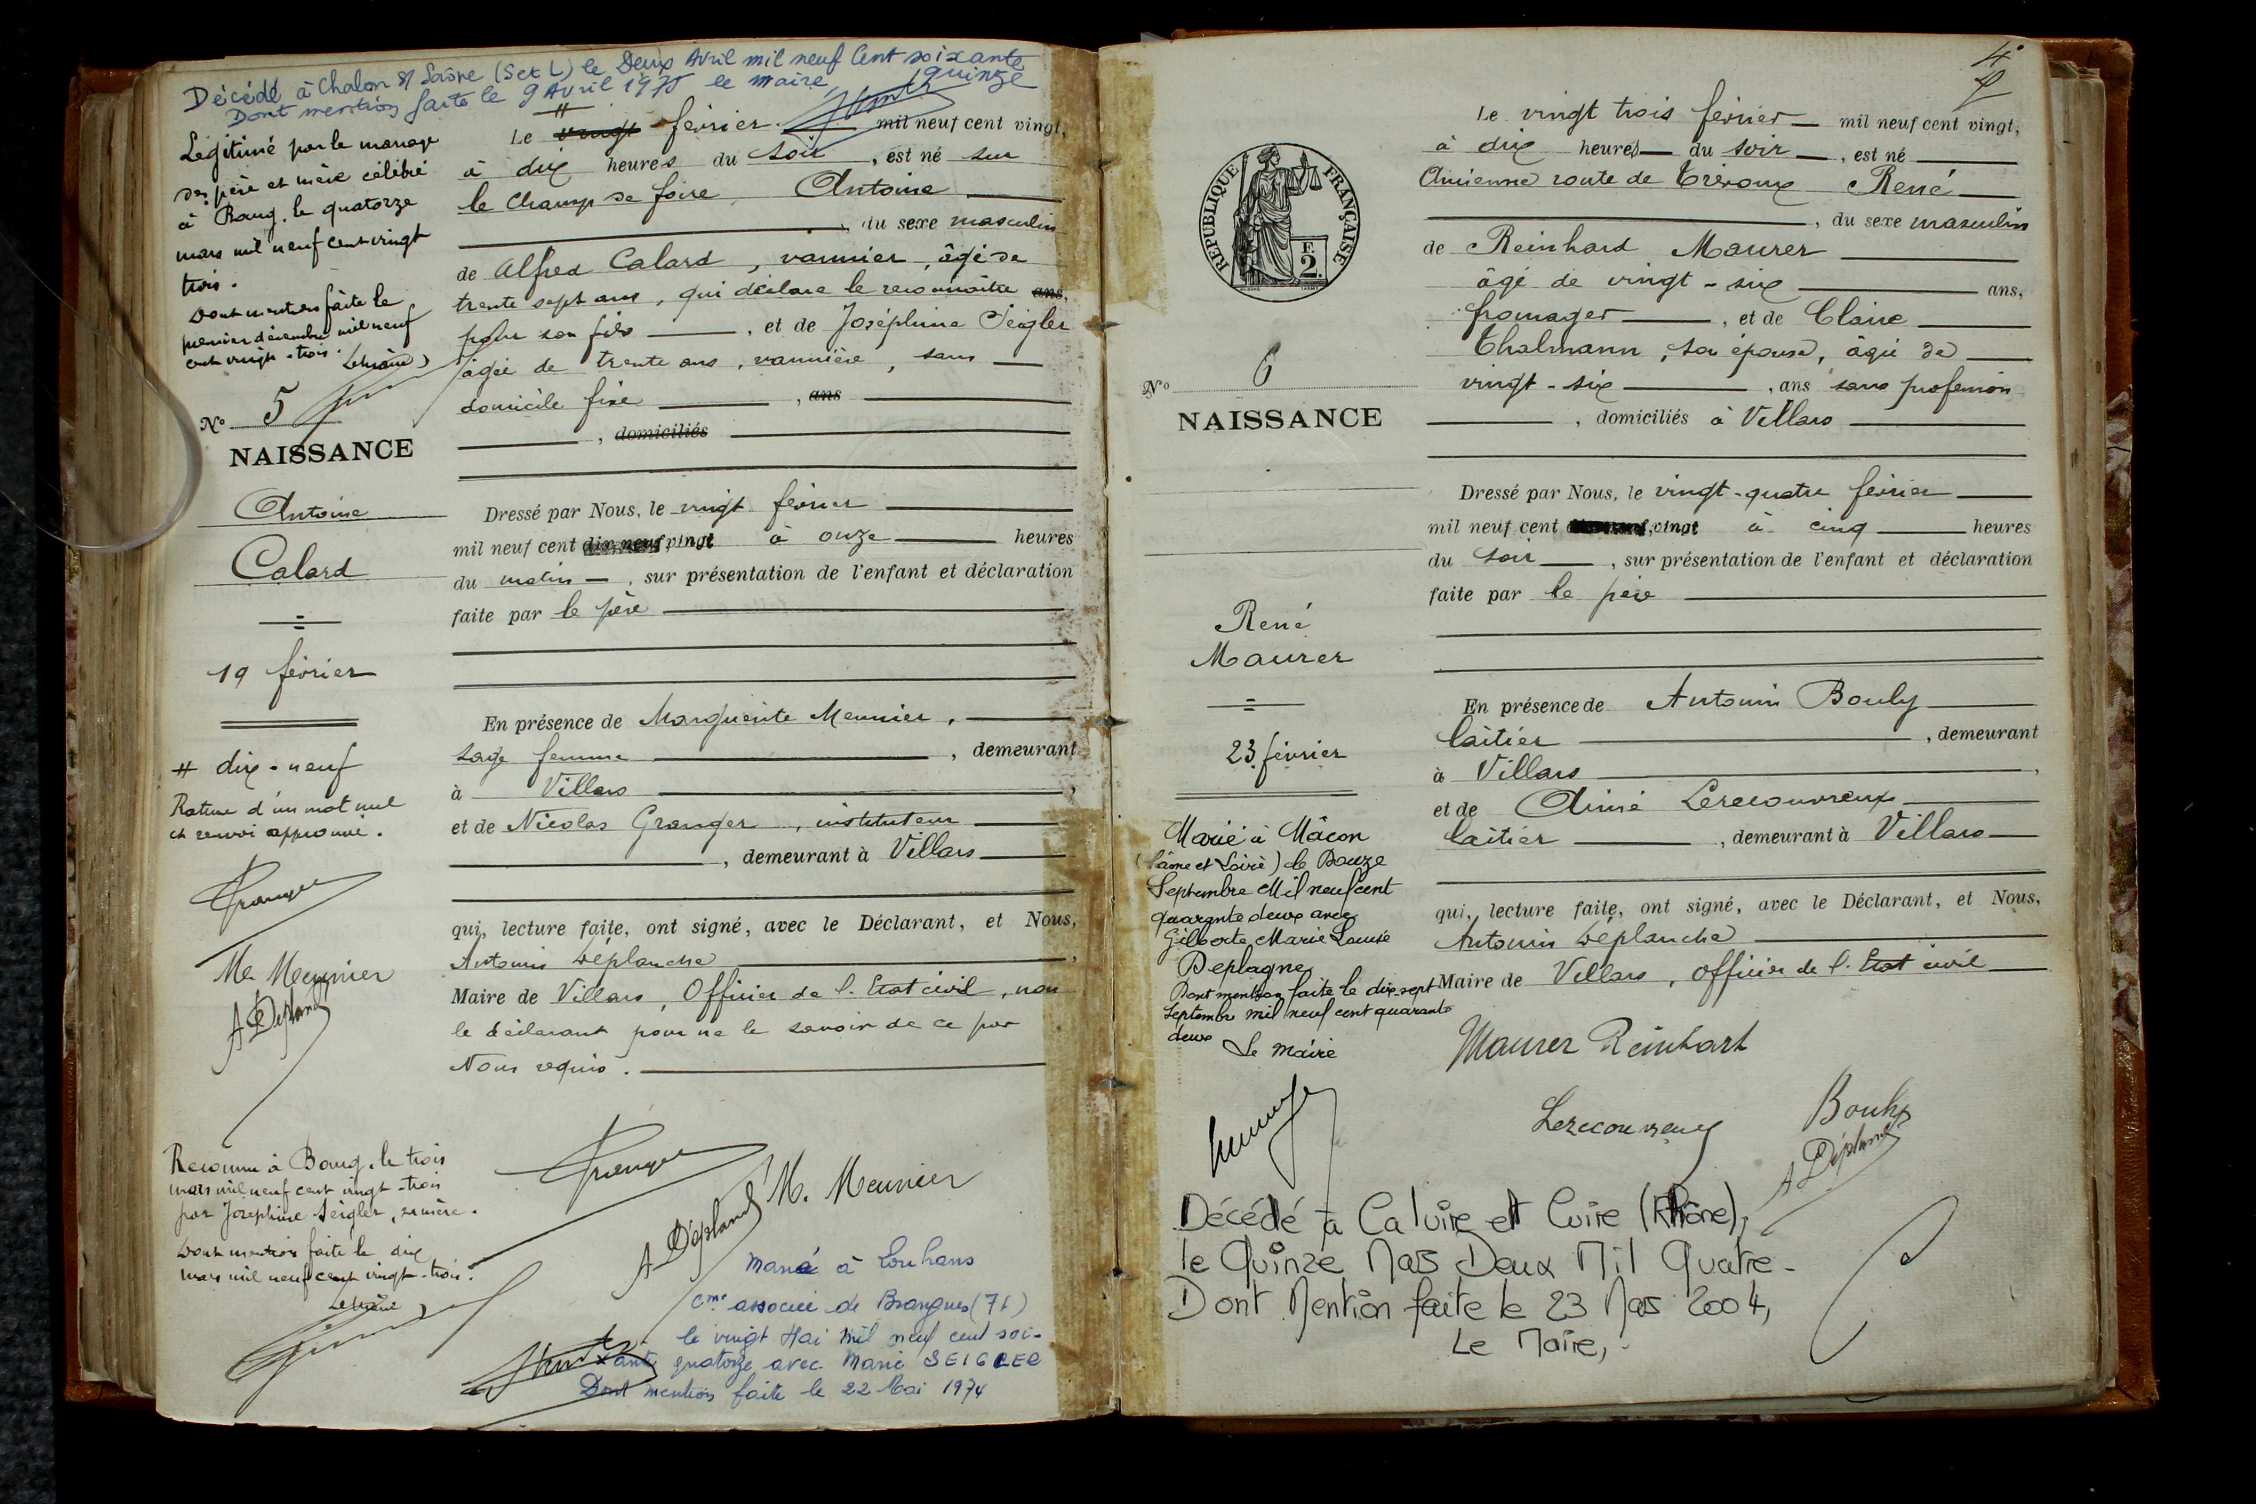 Décédé à Chalon s/ Saône (S et L) le Deux Avril mil neuf Cent soixante
quinze
Dont mention faite le 9 Avril 1975 le maire,
Légitimé par le mariage
des père et mère célébré
à Bourg, le quatorze
mars mil neuf cent vingt
trois.
Dont mention faite le
premier décembre mil neuf
cent vingt-trois.
Le maire,
N° 5
NAISSANCE
Antoine
Calard
19 février
# dix-neuf
Rature d'un mot nul
et renvoi approuvé.
Granger
M. Meunier
A Déplanche
Reconnu à Bourg, le trois
mars mil neuf cent vingt-trois
par Joséphine Seigler, sa mère.
Dont mention faite le dix
mars mil neuf cent vingt-trois.
Le maire,
#
Le vingt février mil neuf cent vingt,
à dix heures du soir, est né sur
le champ de foire, Antoine
, du sexe masculin
de Alfred Calard, vannier, âgé de
trente sept ans, qui déclare le reconnaître ans,
pour son fils, et de Joséphine Seigler
âgée de trente ans, vannière, sans
domicile fixe, ans
, domiciliés
Dressé par Nous, le vingt février
mil neuf cent dix neuf vingt à onze heures
du matin, sur présentation de l'enfant et déclaration
faite par le père
En présence de Marguerite Meunier,
sage femme, demeurant
à Villars,
et de Nicolas Granger, instituteur
, demeurant à Villars
qui, lecture faite, ont signé, avec le Déclarant, et Nous,
Antonin Déplanche,
Maire de Villars, Officier de l'Etat civil, non
le déclarant pour ne le savoir de ce par
Nous requis.
Granger
M. Meunier
A Déplanche
Marié à Louhans
Cne associée de Branges (71)
le vingt Mai mil neuf cent soi-
xante quatorze avec Marie SEIGLER
Dont mention faite le 22 Mai 1974
4
RÉPUBLIQUE FRANÇAISE
F.
2.
N° 6
NAISSANCE
René
Maurer
23 février
Marié à Mâcon
(Saône et Loire) le Douze
Septembre Mil neuf cent
quarante deux avec
Gilberte Marie Louise
Deplagne
Dont mention faite le dix-sept
Septembre mil neuf cent quarante
deux
Le Maire
Le vingt trois février mil neuf cent vingt,
à dix heures du soir, est né
Ancienne route de Trévoux René
, du sexe masculin
de Reinhard Maurer
âgé de vingt-six ans,
fromager, et de Claire
Thalmann, son épouse, âgée de
vingt-six, ans sans profession
, domiciliés à Villars
Dressé par Nous, le vingt-quatre février
mil neuf cent vingt à cinq heures
du soir, sur présentation de l'enfant et déclaration
faite par le père
En présence de Antonin Bouly
laitier, demeurant
à Villars,
et de Aimé Lerecouvreux
laitier, demeurant à Villars
qui, lecture faite, ont signé, avec le Déclarant, et Nous,
Antonin Déplanche
Maire de Villars, officier de l'Etat civil
Maurer Reinhart
Lerecouvreux
Bouly
A Déplanche
Décédé à Caluire et Cuire (Rhône),
le Quinze Mars Deux Mil Quatre-
Dont Mention faite le 23 Mars 2004,
Le Maire,